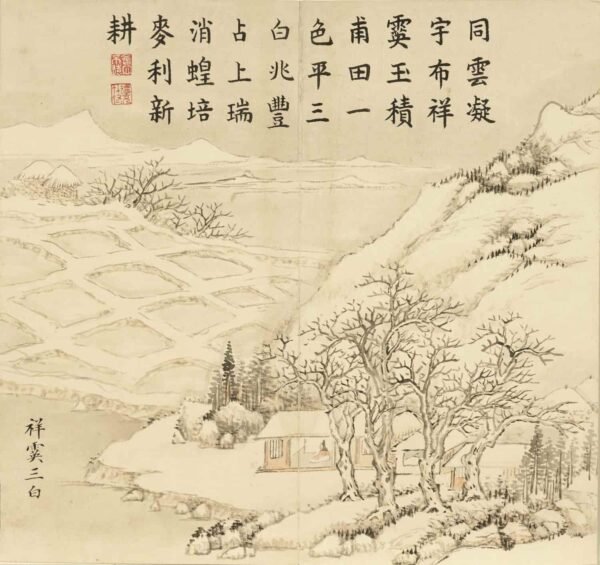 同雲凝
宇布祥
霙玉積
甫田一
色平三
白兆豐
占上瑞
消蝗培
麥利新
耕
祥霙三白